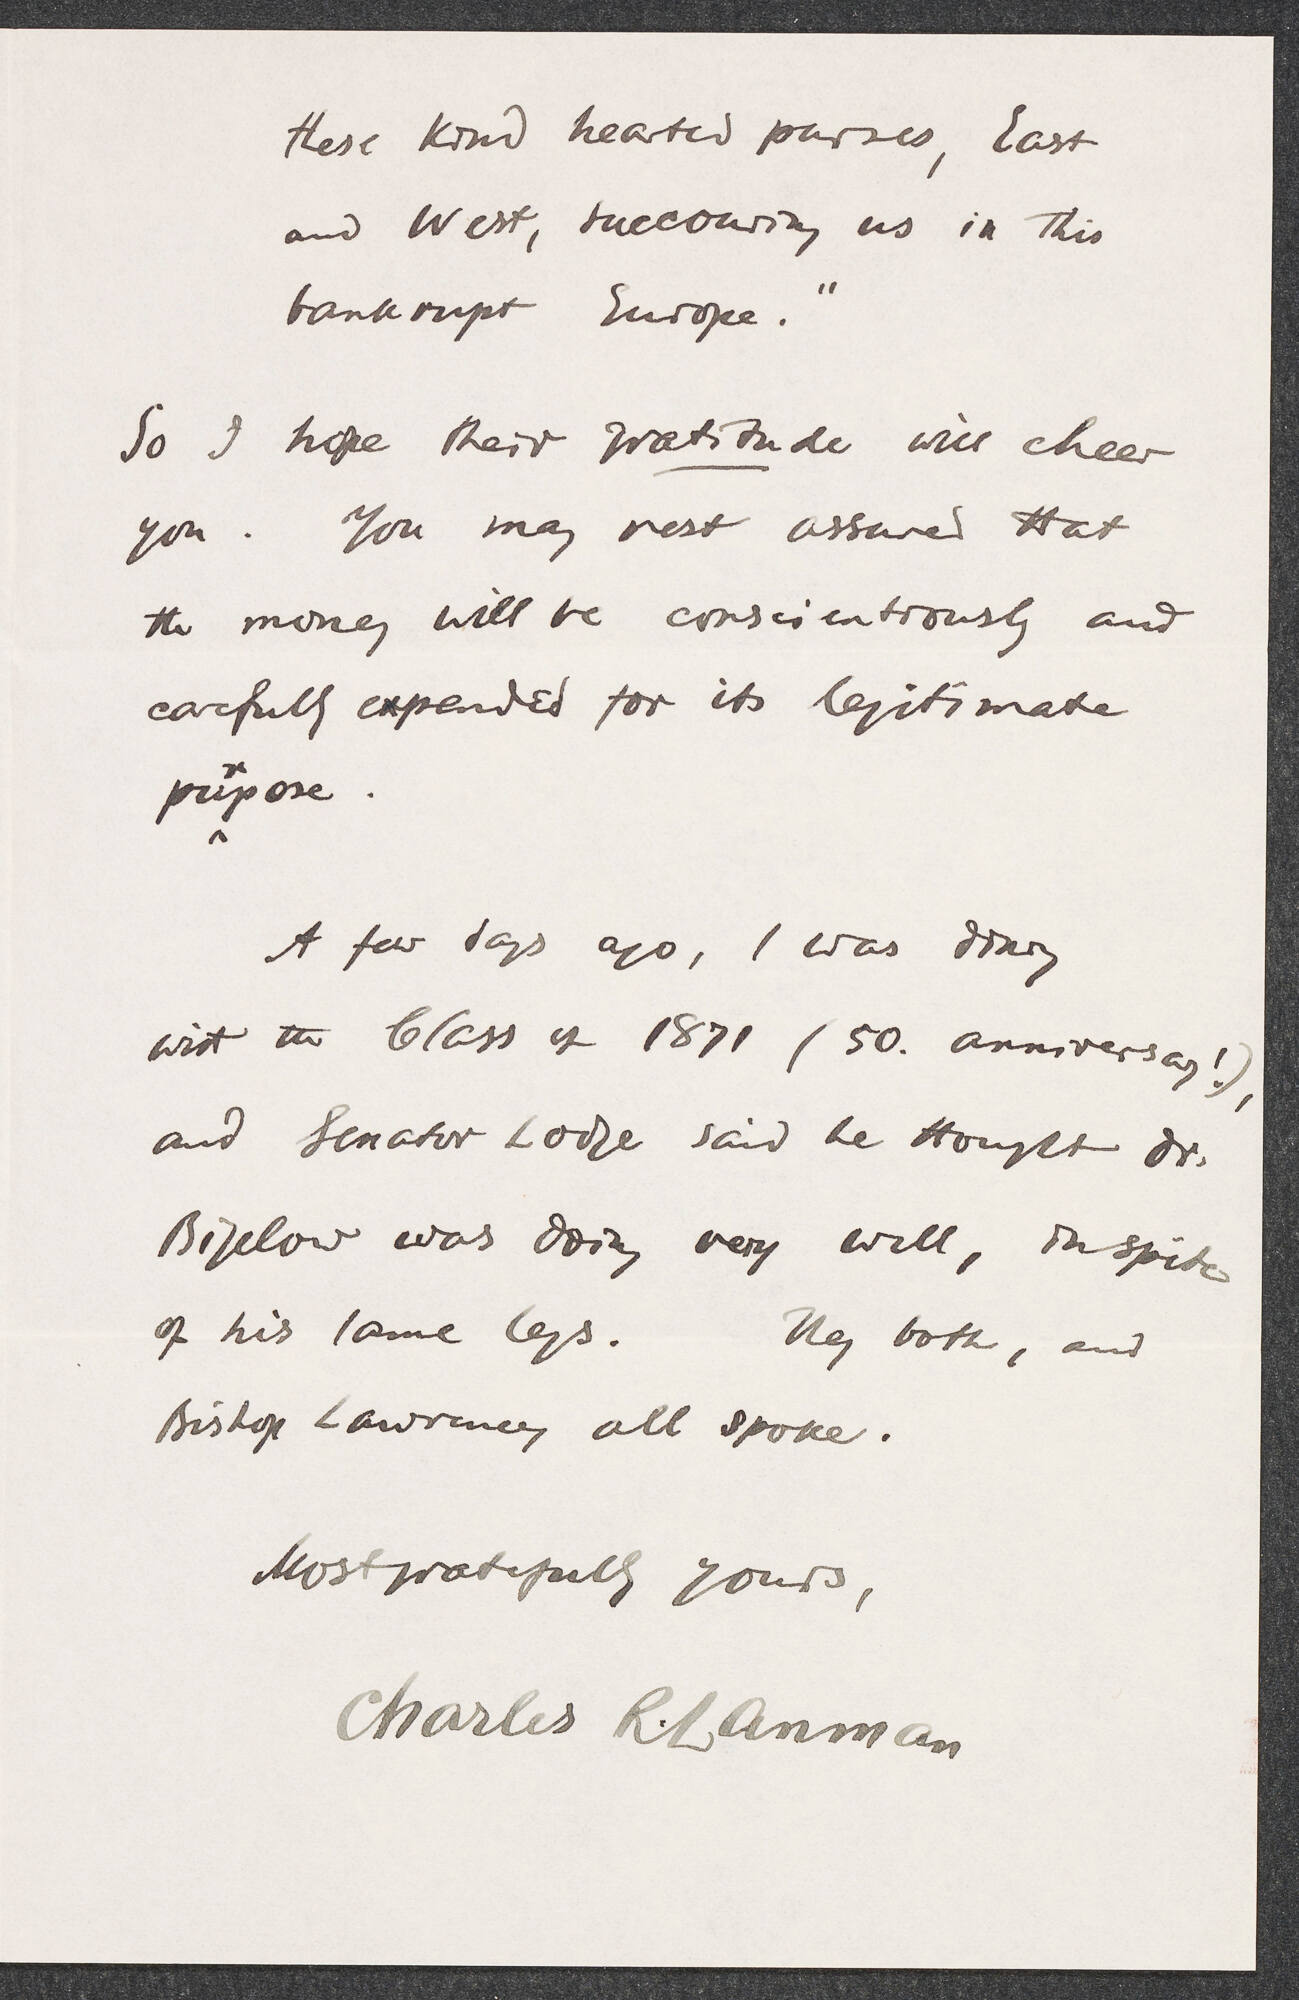 these kind hearted purses, East
and West, succouring us in this
bankrupt Europe."
So I hope their gratitude will cheer
you. You may rest assured that
the money will be conscientiously and
carefully expended for its legitimate
purpose.
A few days ago, I was dining
with the Class of 1871 (50. anniversary!),
and Senator Lodge said he thought Dr.
Bigelow was doing very well, in spite
of his lame legs. They both, and
Bishop Lawrence, all spoke.
Most gratefully yours,
Charles R. Lanman